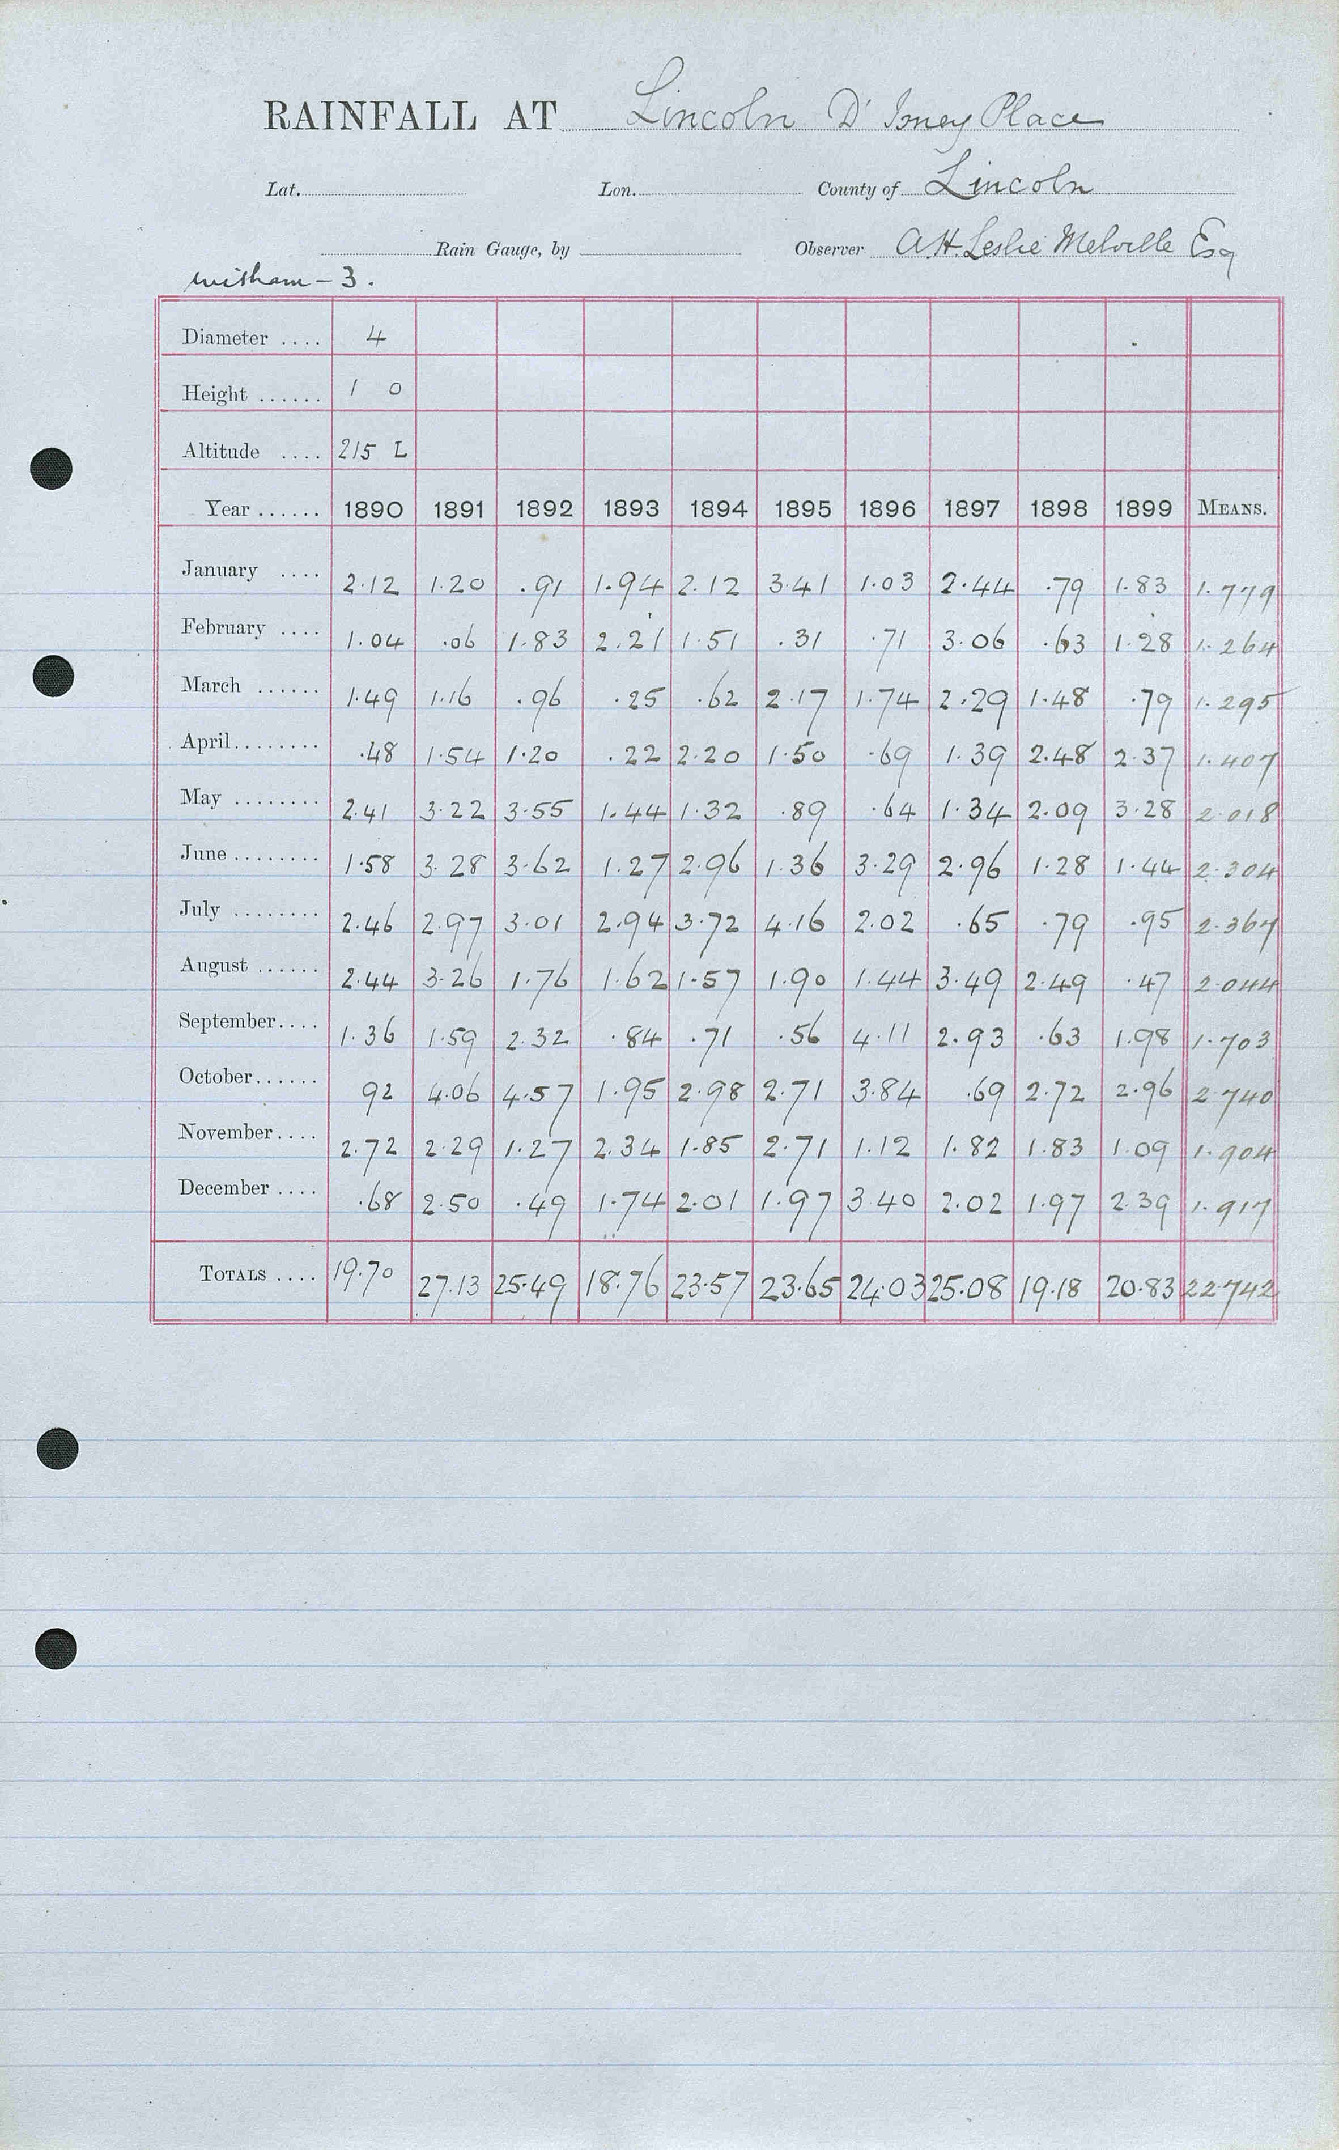 RAINFALL AT Lincoln D'Isney Place
Lat. Lon. County of Lincoln
Rain Gauge, by Observer A H. Leslie Melville Esq
Witham - 3.
Diameter .... 4
Height ...... 1 0
Altitude .... 215 L
Year ...... 1890 1891 1892 1893 1894 1895 1896 1897 1898 1899 MEANS.
January .... 2.12 1.20 .91 1.94 2.12 3.41 1.03 2.44 .79 1.83 1.779
February .... 1.04 .06 1.83 2.21 1.51 .31 .71 3.06 .63 1.28 1.264
March ...... 1.49 1.16 .96 .25 .62 2.17 1.74 2.29 1.48 .79 1.295
April........ .48 1.54 1.20 .22 2.20 1.50 .69 1.39 2.48 2.37 1.407
May ........ 2.41 3.22 3.55 1.44 1.32 .89 .64 1.34 2.09 3.28 2.018
June ........ 1.58 3.28 3.62 1.27 2.96 1.36 3.29 2.96 1.28 1.44 2.304
July ........ 2.46 2.97 3.01 2.94 3.72 4.16 2.02 .65 .79 .95 2.367
August ...... 2.44 3.26 1.76 1.62 1.57 1.90 1.44 3.49 2.49 .47 2.044
September.... 1.36 1.59 2.32 .84 .71 .56 4.11 2.93 .63 1.98 1.703
October...... 92 4.06 4.57 1.95 2.98 2.71 3.84 .69 2.72 2.96 2.740
November.... 2.72 2.29 1.27 2.34 1.85 2.71 1.12 1.82 1.83 1.09 1.904
December .... .68 2.50 .49 1.74 2.01 1.97 3.40 2.02 1.97 2.39 1.917
TOTALS .... 19.70 27.13 25.49 18.76 23.57 23.65 24.03 25.08 19.18 20.83 22.742